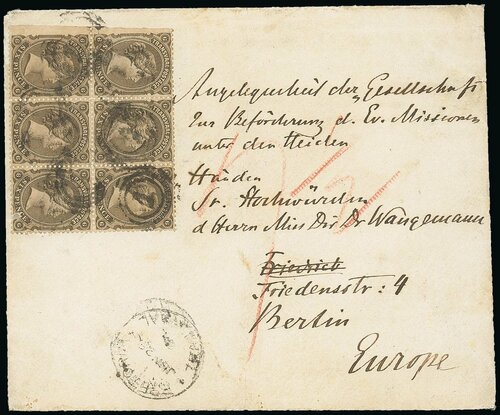 Angelegenheit der „Gesellschaft
zur Beförderung d. Ev. Missionen
unter den Heiden
Händen
Sr. Hochwürden
d Herrn Miss Dir Dr Wangemann
Friedrich
Friedensstr: 4
Berlin
Europe